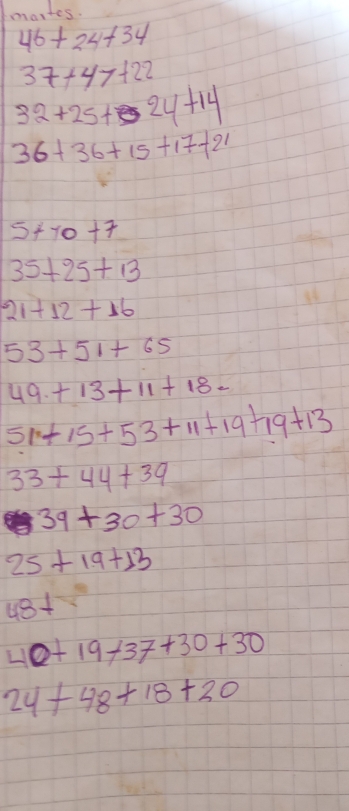 martes.
46+24+34
37+47+22
32+25+ 24+14
36+36+15+17+21
5+10+7
35+25+13
21+12+16
53+51+65
49+13+11+18-
51+15+53+11+19+19+13
33+44+39
39+30+30
25+19+13
48+
40+19+37+30+30
24+48+18+20